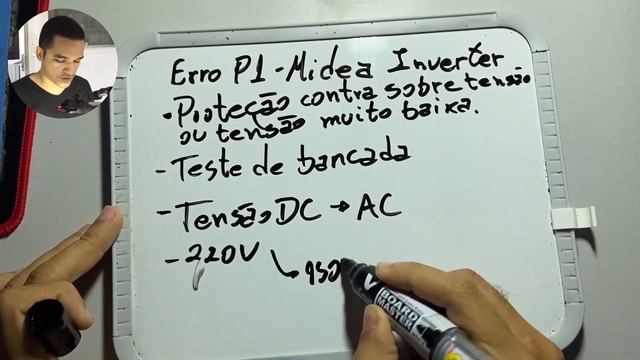 Erro P1 - Midea Inverter
- Proteção contra sobre tensão
ou tensão muito baixa.
- Teste de bancada
- Tensão DC → AC
- 220V
↳ 950
V BOARD
MASTER